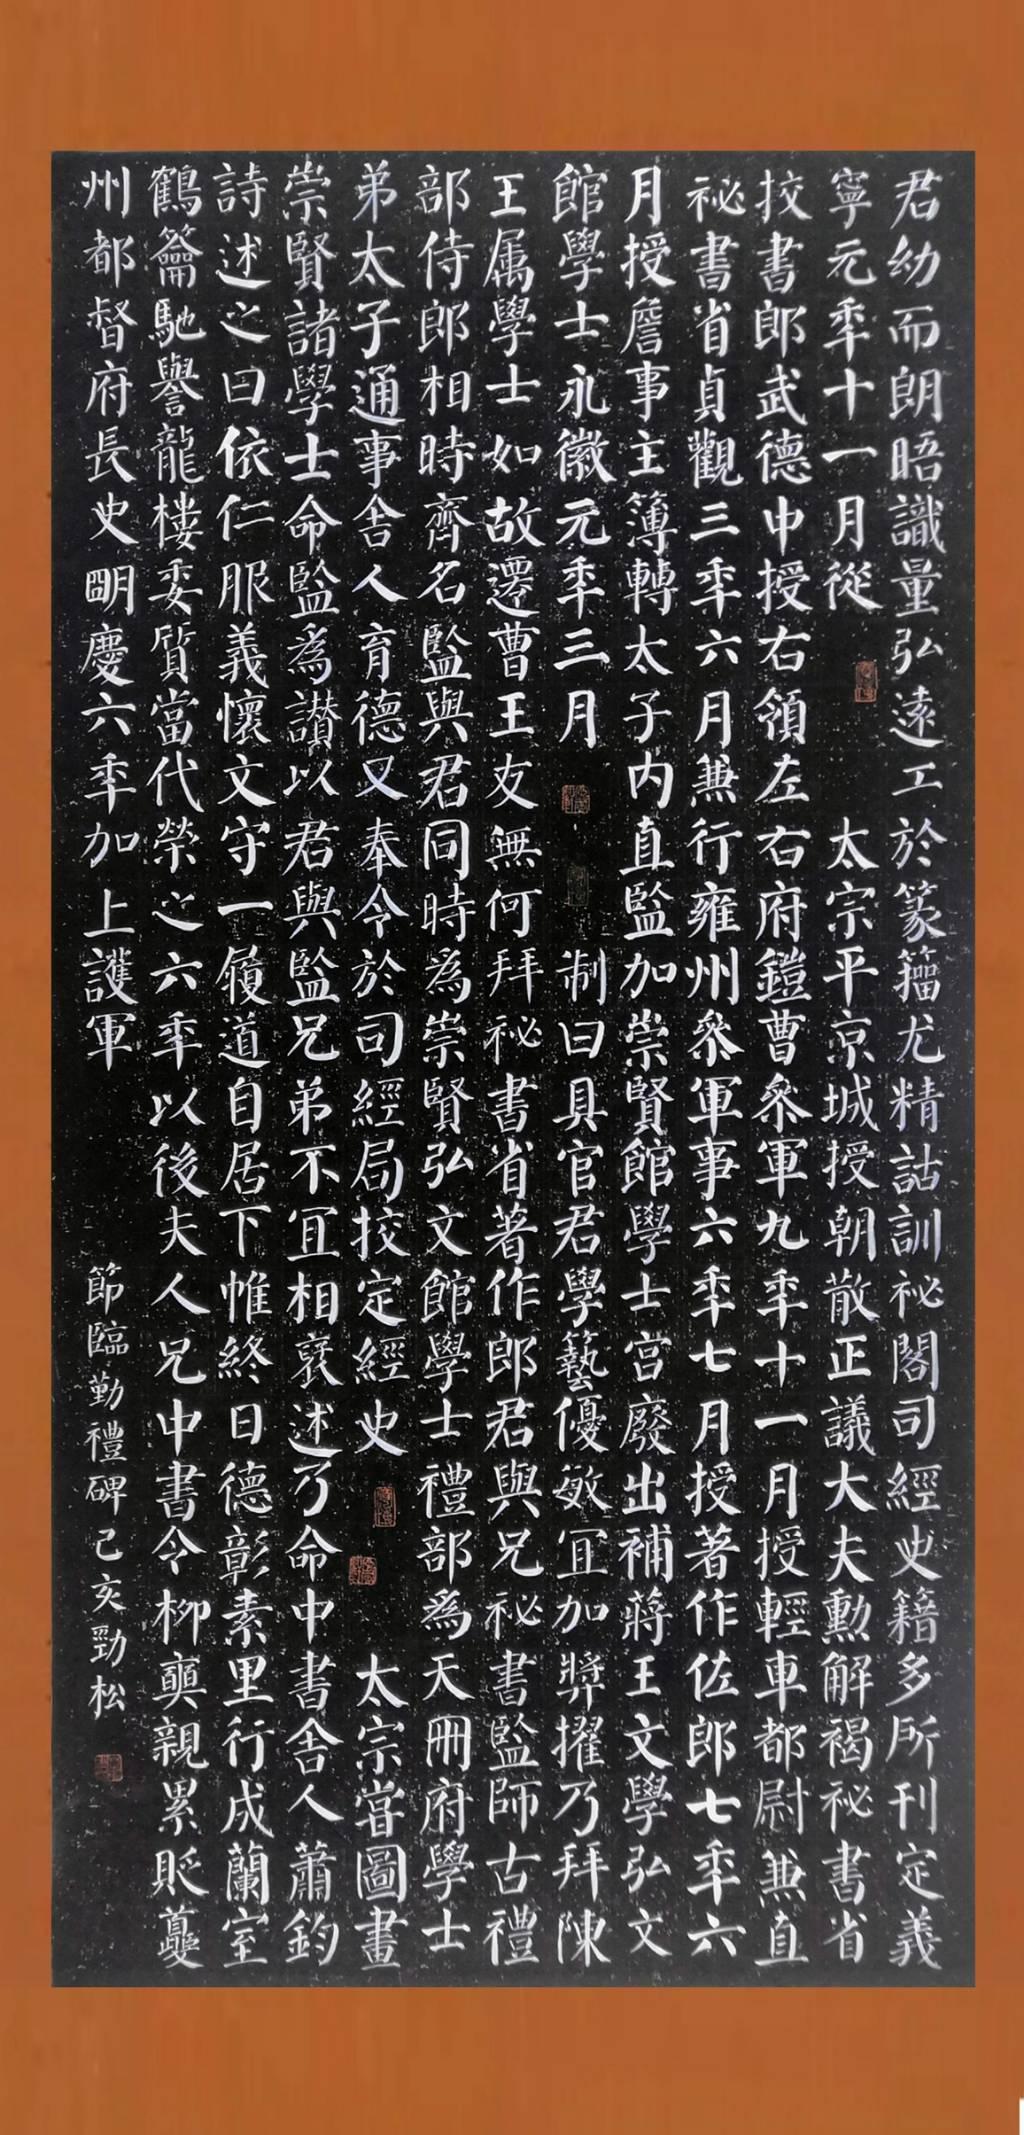 君幼而朗晤識量弘遠工於篆籀尤精詁訓祕閣司經史籍多所刊定義
寧元年十一月從 太宗平京城授朝散正議大夫勳解褐祕書省
挍書郎武德中授右領左右府鎧曹叅軍九年十一月授輕車都尉兼直
祕書省貞觀三年六月兼行雍州叅軍事六年七月授著作佐郎七年六
月授詹事主簿轉太子內直監加崇賢館學士宮廢出補蔣王文學弘文
館學士永徽元年三月 制曰具官君學藝優敏宜加奬擢乃拜陳
王属學士如故遷曹王友無何拜祕書省著作郎君與兄祕書監師古禮
部侍郎相時齊名監與君同時為崇賢弘文館學士禮部為天冊府學士
弟太子通事舍人育德又奉令於司經局挍定經史 太宗甞圖畫
崇賢諸學士命監為讃以君與監兄弟不宜相襃述乃命中書舍人蕭鈞
詩述之曰依仁服義懷文守一履道自居下帷終日德彰素里行成蘭室
鶴籥馳譽龍樓委質當代榮之六年以後夫人兄中書令柳奭親累貶夔
州都督府長史明慶六年加上護軍 節臨勤禮碑己亥勁松